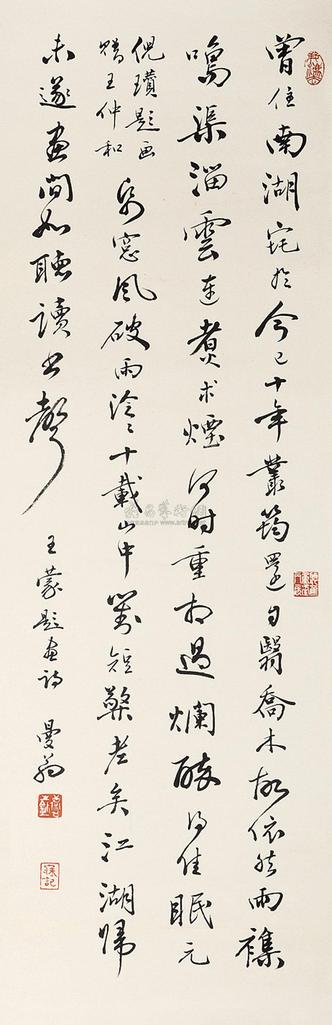 曾住南湖宅於今已十年叢筠還自翳喬木故依然雨襍
鳴渠溜雲連煮朮煙何时重相過爛醉得佳眠元
倪瓚題画
贈王仲和
帋窓風破雨泠〻十載山中對短檠老矣江湖歸
未遂畫間如聽讀書聲
王蒙題畫詩 曼翁